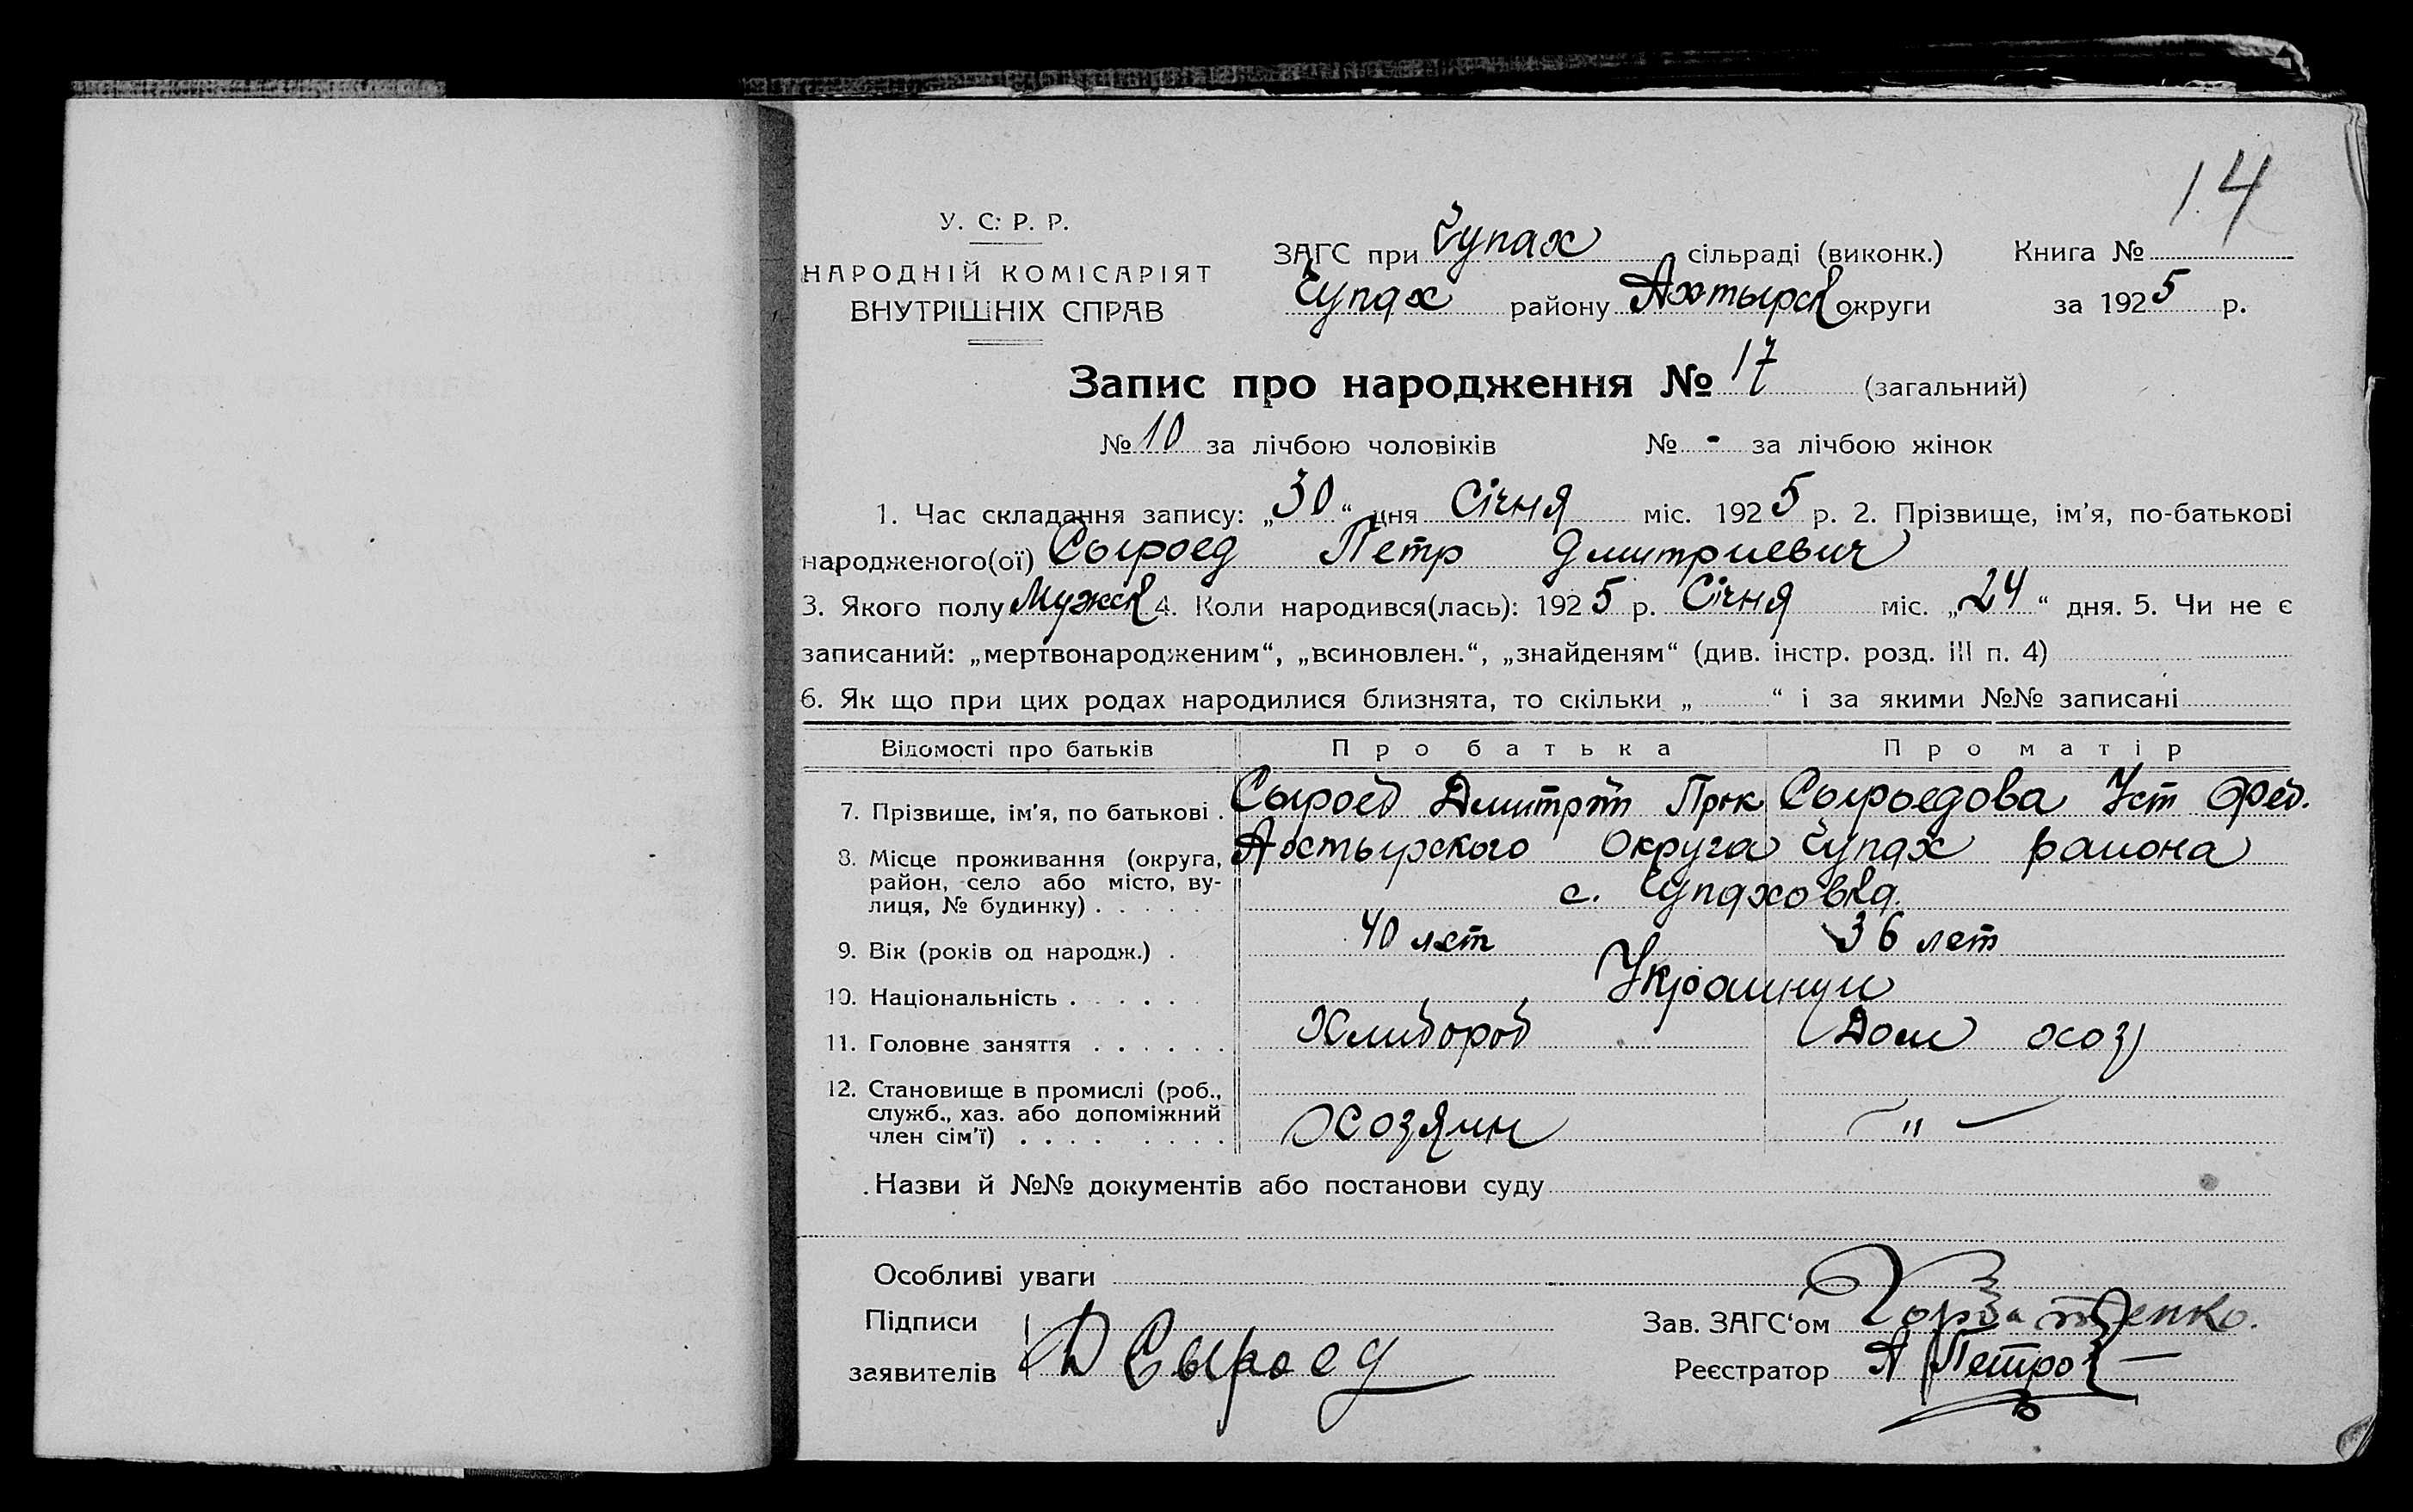 14
У. С. Р. Р.
НАРОДНІЙ КОМІСАРІЯТ
ВНУТРІШНІХ СПРАВ
ЗАГС при Чупах сільраді (виконк.) Книга №
Чупах району Ахтырск округи за 1925 р.
Запис про народження № 17 (загальний)
№ 10 за лічбою чоловіків № - за лічбою жінок
1. Час складання запису: „30“ дня Січня міс. 1925 р. 2. Прізвище, ім'я, по-батькові
народженого(ої) Сыроед Петр Дмитриевич
3. Якого полу Мужск 4. Коли народився(лась): 1925 р. Січня міс. „24“ дня. 5. Чи не є
записаний: „мертвонародженим“, „всиновлен.“, „знайденям“ (див. інстр. розд. III п. 4)
6. Як що при цих родах народилися близнята, то скільки „ “ і за якими №№ записані
Відомості про батьків Про батька Про матір
7. Прізвище, ім'я, по батькові . Сыроед Дмитрій Прок Сыроедова Уст Фед.
8. Місце проживання (округа, район, село або місто, вулиця, № будинку) . . . . . Ахтырского Округа Чупах района
с. Чупаховка.
9. Вік (років од народж.) . 40 лет 36 лет
10. Національність . . . . . . Украинци
11. Головне заняття . . . . . . Хлибороб Дом хоз
12. Становище в промислі (роб., служб., хаз. або допоміжний член сім'ї) . . . . . . . . Хозяин — " —
Назви й №№ документів або постанови суду
Особливі уваги
Підписи
заявителів Д Сыроед
Зав. ЗАГС'ом
Реєстратор А Петров